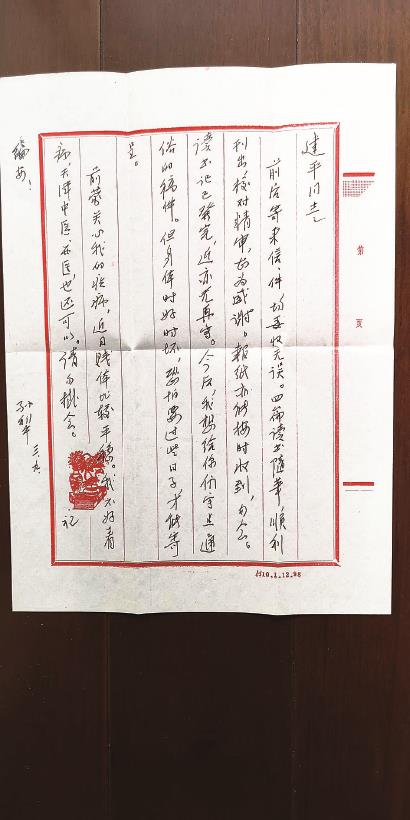 第 页
建平同志
前后寄来信、件均妥收无误。四篇读书随笔顺利
刊出,校对精审,甚为感谢。报纸亦能按时收到,勿念。
读书记已发完,近亦无再写。今后,我想给你们写点通
俗的稿件。但身体时好时坏,恐怕要过些日子才能寄
呈。
前蒙关心我的疾病,近日贱体比较平稳。我不好看
病,天津中医名医也还可以。请勿挂念。 祝
编安!
孙犁 三、九